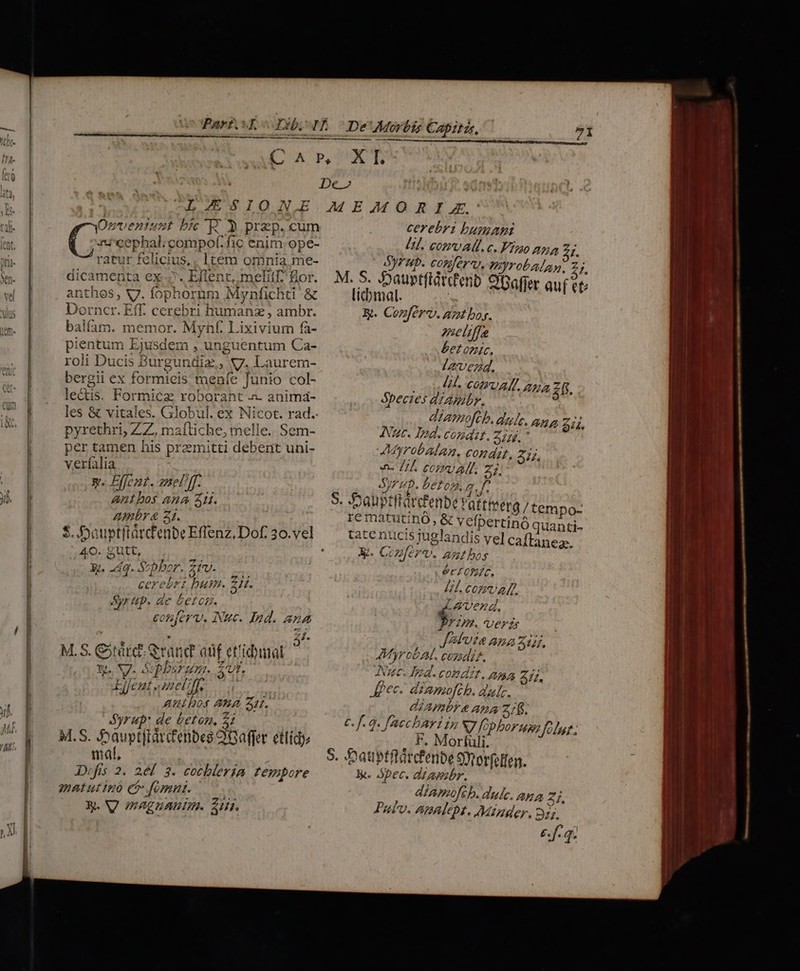 Part. I. Lib. II. De Morbis Capitis. 71
CAP. XI.
De
LÆSIONE MEMORIÆ.
Conveniunt hic præp. cum
cephal. compos. sic enim ope-
ratur felicius, Item omnia me-
dicamenta ex Essent. meliss. flor.
anthos, ▽. sophorum Mynsichti &
Dorncr. Ess. cerebri humanæ, ambr.
balsam. memor. Myns. Lixivium sa-
pientum Ejusdem, unguentum Ca-
roli Ducis Burgundiæ, ▽. Laurem-
bergii ex formicis mense Junio col-
lectis. Formicæ roborant anima-
les & vitales. Globul. ex Nicot. rad.
pyrethri, ZZ, mastiche, melle. Sem-
per tamen his præmitti debent uni-
versalia
℞. Essent. meliss.
anthos ana ʒii.
ambræ ʒi.
S. Hauptstärckende Essenz, Dos. 30. vel
40. gutt.
℞. Aq. Sophor. ʒiv.
cerebri hum. ʒii.
Syrup. de beton.
conserv. Nuc. Ind. ana
ʒi.
M. S. Stärck-Tranck auf etlichmal
℞. ▽. Sophorum. ʒvi.
Essent. meliss.
anthos ana ʒii.
Syrup. de beton. ʒi
M. S. Hauptstärckendes Wasser etlich-
mal,
Dosis 2. vel 3. cochleria tempore
matutino & somni.
℞. ▽ magnanim. ʒiii.
cerebri humani
lil. convall. c. Vino ana ʒi.
Syrup. conserv. myrobalan. ʒi.
M. S. Hauptstärckend Wasser auf et-
lichmal.
℞. Conserv. anthos.
melissæ
betonic.
lavend.
lil. convall. ana ʒß.
Species diambr.
diamosch. dulc. ana ʒii.
Nuc. Ind. condit. ʒiii.
Myrobalan. condit. ʒii.
lil. convall. ʒi.
Syrup. beton. q. s.
S. Hauptstärckende Lattwerg / tempo-
re matutinô, & vespertinô quanti-
tate nucis juglandis vel castaneæ.
℞. Conserv. anthos
betonic.
lil. convall.
Lavend.
prim. veris
salviæ ana ʒiii.
Myrobal. condit.
Nuc. Ind. condit. ana ʒii.
spec. diamosch. dulc.
diambræ ana ʒiß.
c. s. q. sacchari in ▽ sophorum solut.
F. Morsuli.
S. Hauptstärckende Morsellen.
℞. Spec. diambr.
diamosch. dulc. ana ʒi.
Pulv. analept. Minder. ℈ii.
c. s. q.